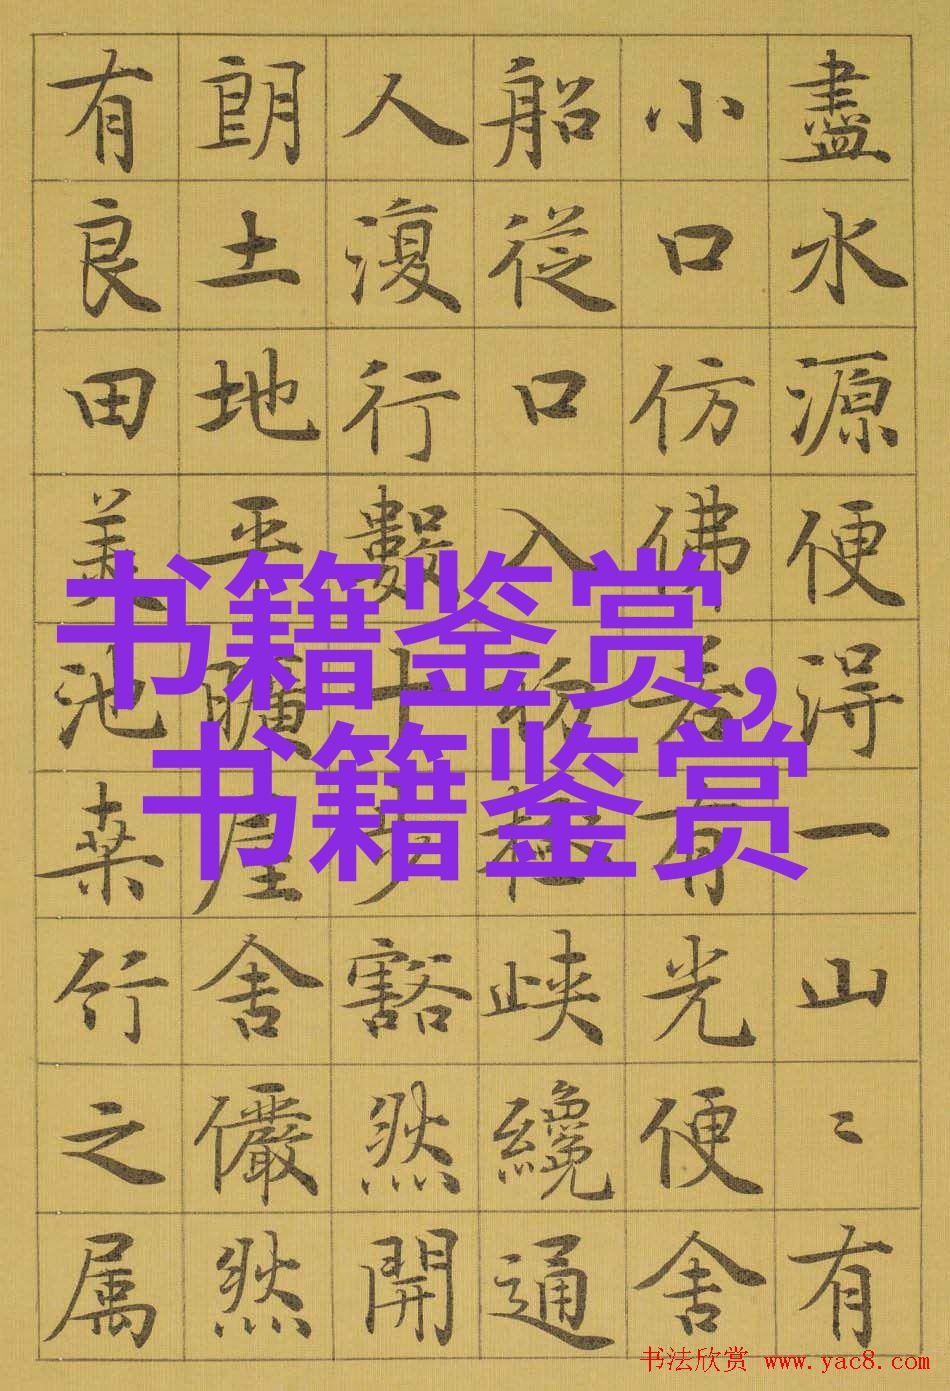 盡水源便得一山〻有
小口仿佛若有光便舍
船從口入初極峽纔通
人復行數十步豁然開
朗土地平曠屋舍儼然
有良田美池桑竹之属
书籍鉴赏,
书籍鉴赏
书法欣赏 www.yac8.com